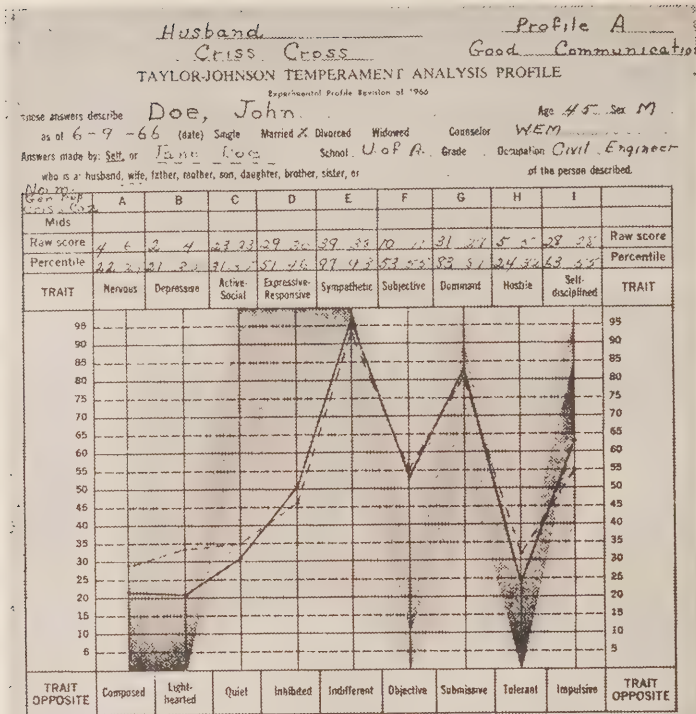 Husband Profile A
Criss Cross Good Communication
TAYLOR-JOHNSON TEMPERAMENT ANALYSIS PROFILE
Experimental Profile Revision of 1966
These answers describe Doe, John Age 45 Sex M
as of 6-9-66 (date) Single Married X Divorced Widowed Counselor WEM
Answers made by: Self, or Jane Doe School U of A Grade Occupation Civil Engineer
who is a: husband, wife, father, mother, son, daughter, brother, sister, or of the person described.
A B C D E F G H I
Mids
Raw score 4 6 2 4 23 23 29 39 10 31 5 28 28 Raw score
Percentile 22 21 31 51 46 97 93 53 55 83 81 24 32 63 55 Percentile
TRAIT Nervous Depressive Active-Social Expressive-Responsive Sympathetic Subjective Dominant Hostile Self-disciplined TRAIT
95 95
90 90
85 85
80 80
75 75
70 70
65 65
60 60
55 55
50 50
45 45
40 40
35 35
30 30
25 25
20 20
15 15
10 10
5 5
TRAIT OPPOSITE Composed Light-hearted Quiet Inhibited Indifferent Objective Submissive Tolerant Impulsive TRAIT OPPOSITE